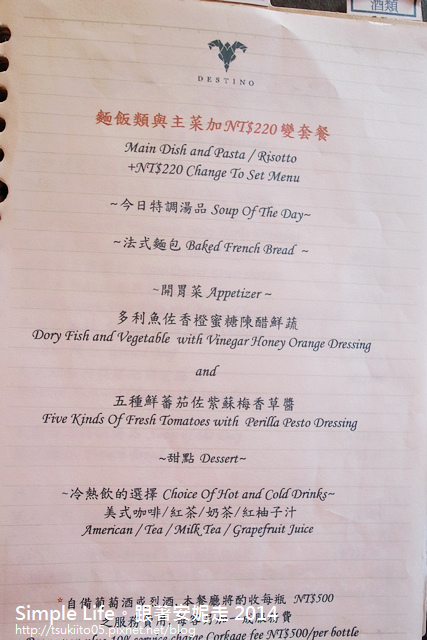 酒類
DESTINO
麵飯類與主菜加NT$220變套餐
Main Dish and Pasta / Risotto
+NT$220 Change To Set Menu
~今日特調湯品 Soup Of The Day~
~法式麵包 Baked French Bread ~
~開胃菜 Appetizer ~
多利魚佐香橙蜜糖陳醋鮮蔬
Dory Fish and Vegetable with Vinegar Honey Orange Dressing
and
五種鮮蕃茄佐紫蘇梅香草醬
Five Kinds Of Fresh Tomatoes with Perilla Pesto Dressing
~甜點 Dessert~
~冷熱飲的選擇 Choice Of Hot and Cold Drinks~
美式咖啡/紅茶/奶茶/紅柚子汁
American / Tea / Milk Tea / Grapefruit Juice
*自備葡萄酒或烈酒,本餐廳將酌收每瓶 NT$500
之服務費用
Simple Life。跟著安妮走 2014
http://tsukiito05.pixnet.net/blog
10% service charge Corkage fee NT$500/per bottle